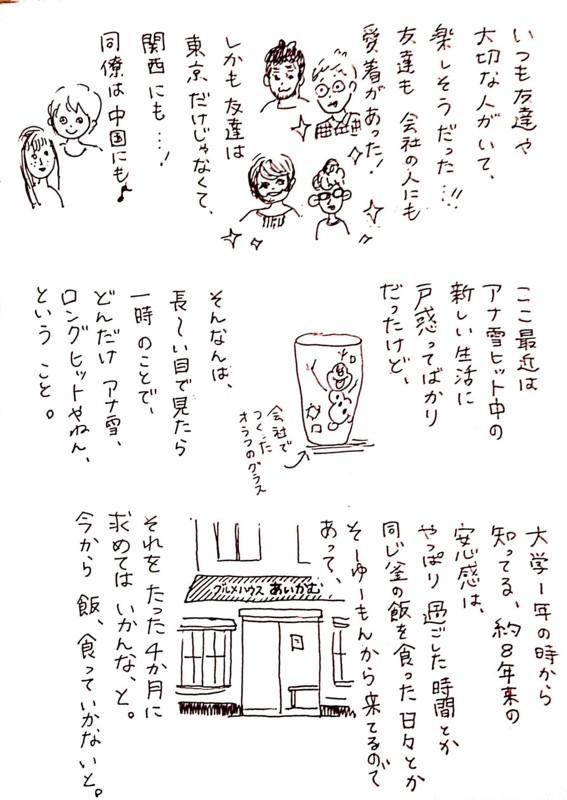 いつも友達や
大切な人がいて、
楽しそうだった…!!
友達も 会社の人にも
愛着があった!
しかも友達は
東京だけじゃなくて、
関西にも…!
同僚は中国にも♪
ここ最近は
アナ雪ヒット中の
新しい生活に
戸惑ってばかり
だったけど、
会社で
つくった
オラフのグラス
そんなんは、
長〜い目で見たら
一時のことで、
どんだけ アナ雪、
ロングヒットやねん、
という こと。
大学1年の時から
知ってる、約8年来の
安心感は、
やっぱり 過ごした 時間とか
同じ釜の飯を食った日々とか
そーゆーもんから来てるので
あって、
グルメハウス あいかむ
それを たった4か月に
求めては いかんな、と。
今から 飯、食っていかないと。